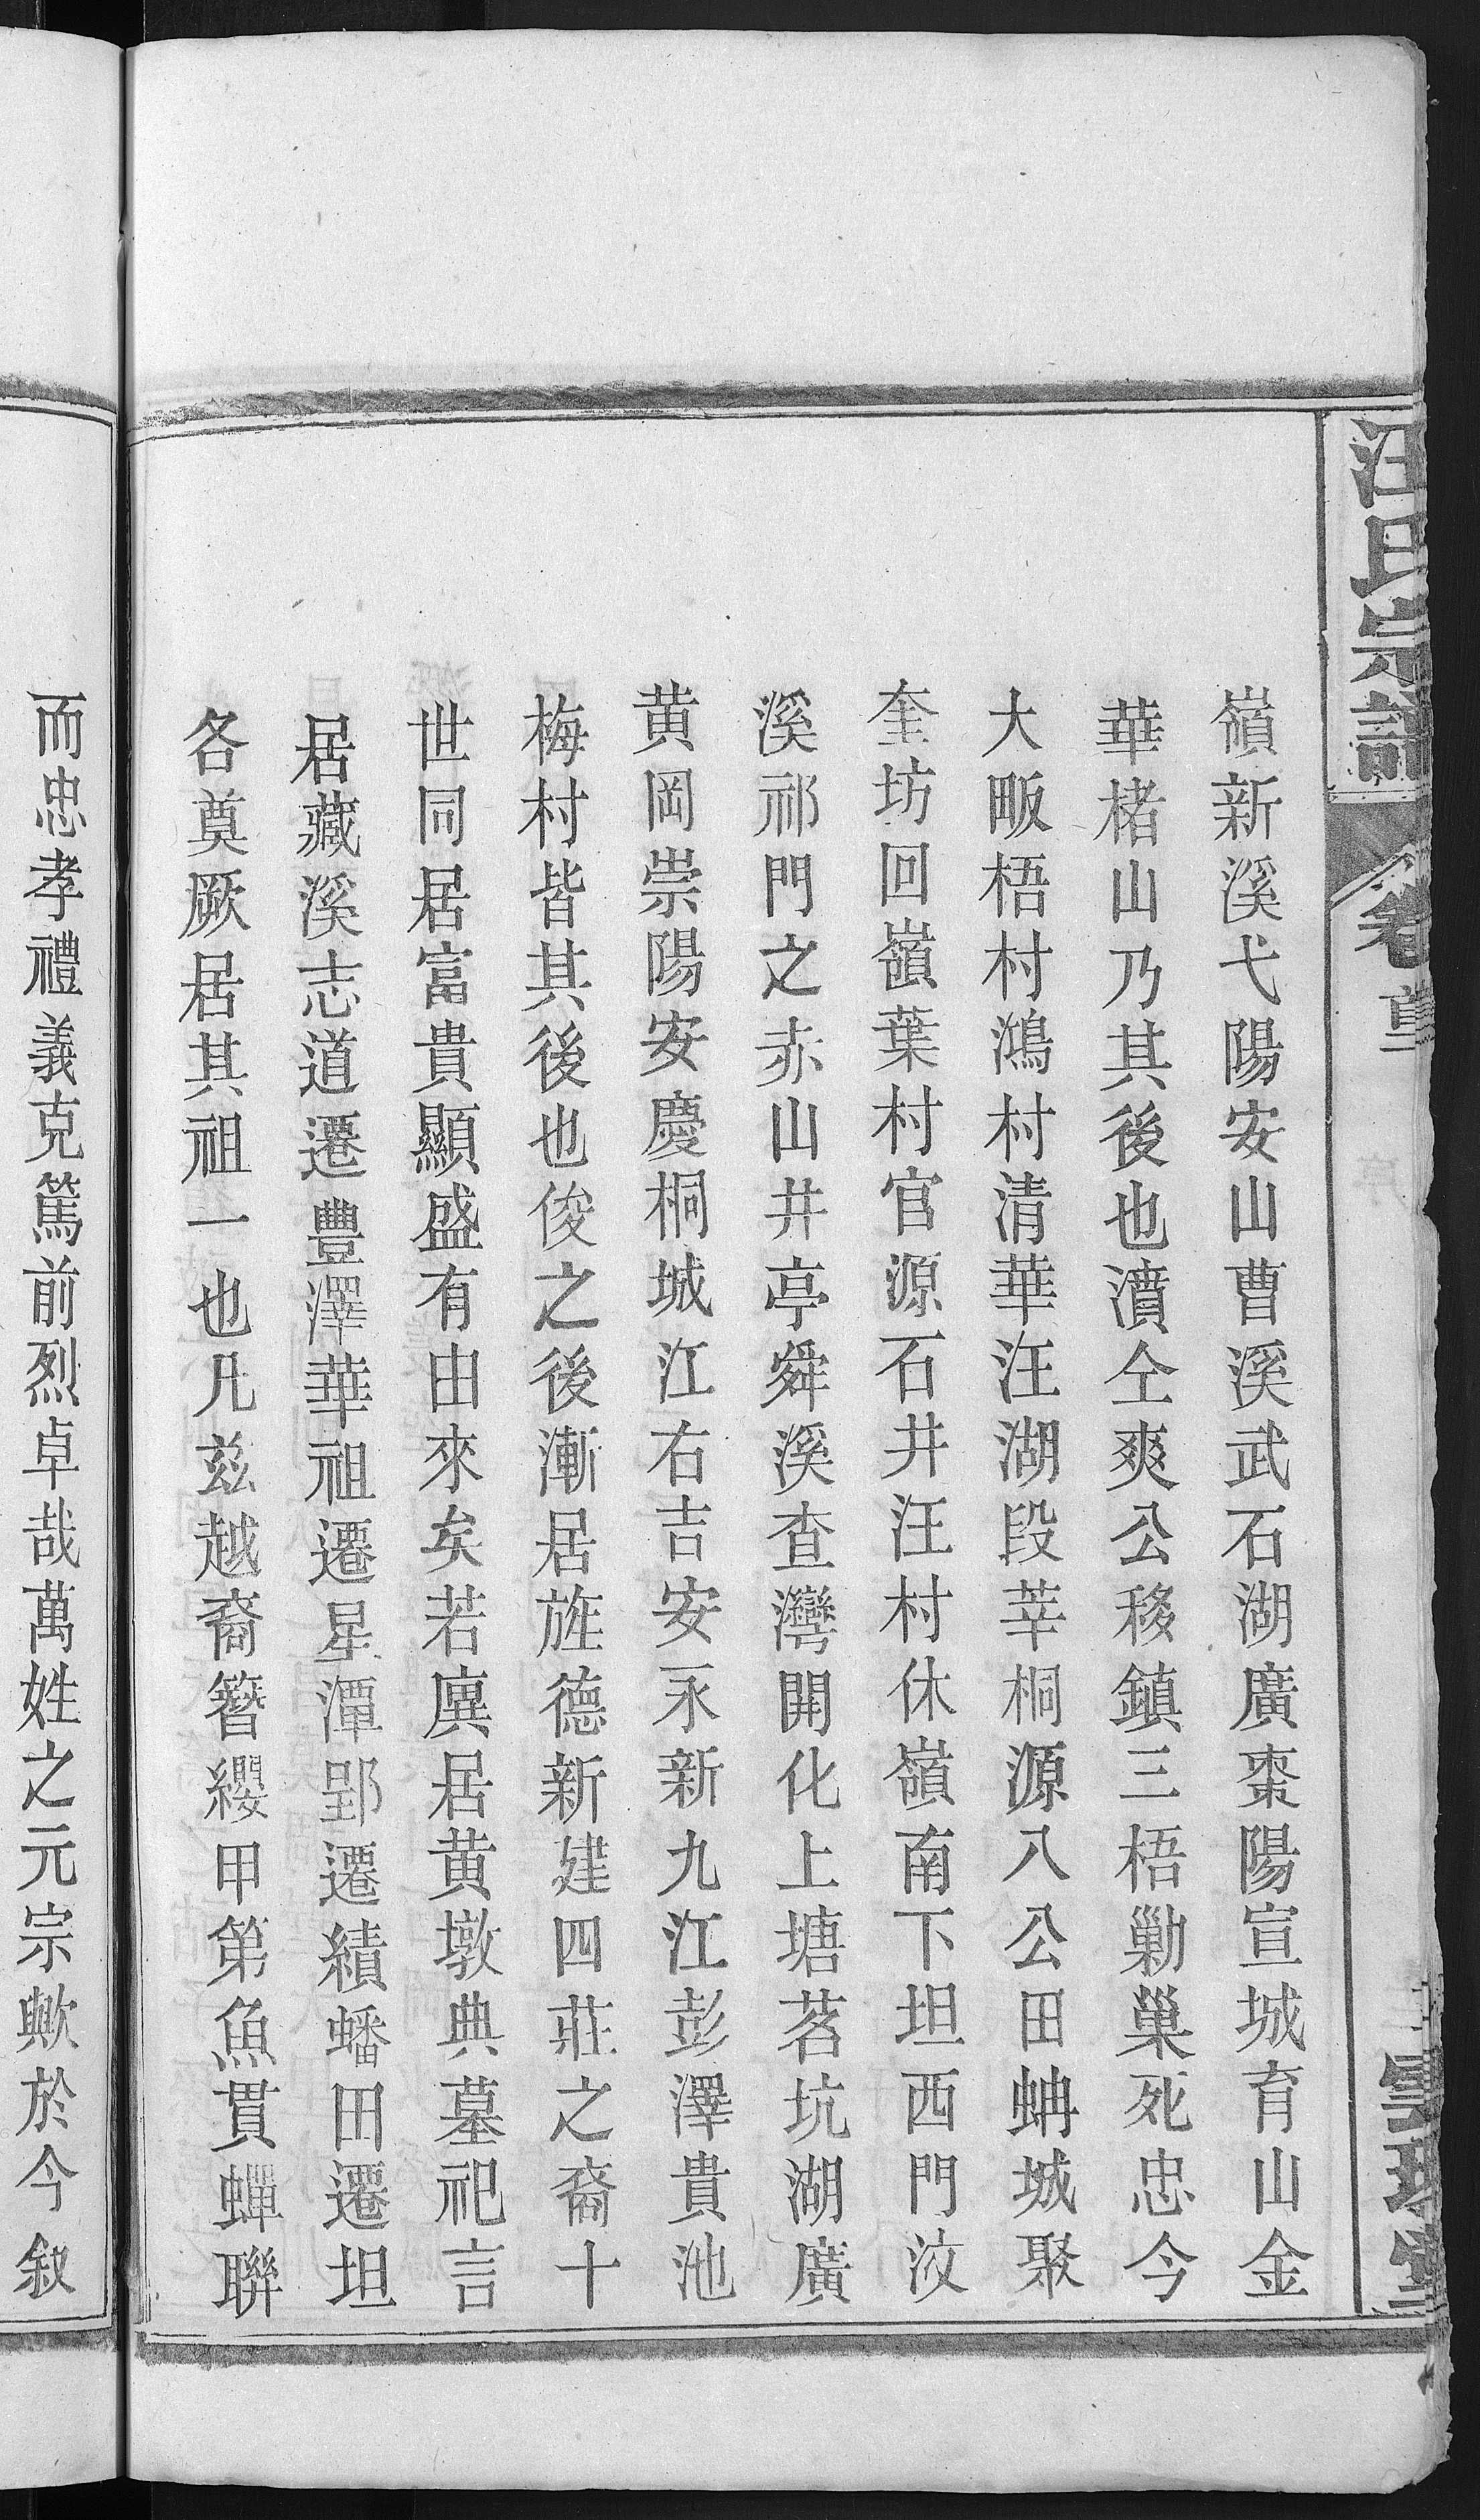 汪氏宗譜
卷首
序
嶺新溪弋陽安山曹溪武石湖廣棗陽宣城育山金
華楮山乃其後也瀆仝爽公移鎮三梧勦巢死忠今
大畈梧村鴻村清華汪湖段莘桐源八公田蚺城聚
奎坊回嶺葉村官源石井汪村休嶺南下坦西門汶
溪祁門之赤山井亭舜溪查灣開化上塘茗坑湖廣
黄岡崇陽安慶桐城江右吉安永新九江彭澤貴池
梅村皆其後也俊之後漸居旌德新建四莊之裔十
世同居富貴顯盛有由來矣若廙居黄墩典墓祀言
居藏溪志道遷豐澤華祖遷星潭郢遷績蟠田遷坦
各奠厥居其祖一也凡兹越裔簪纓甲第魚貫蟬聯
而忠孝禮義克篤前烈卓哉萬姓之元宗歟於今敘